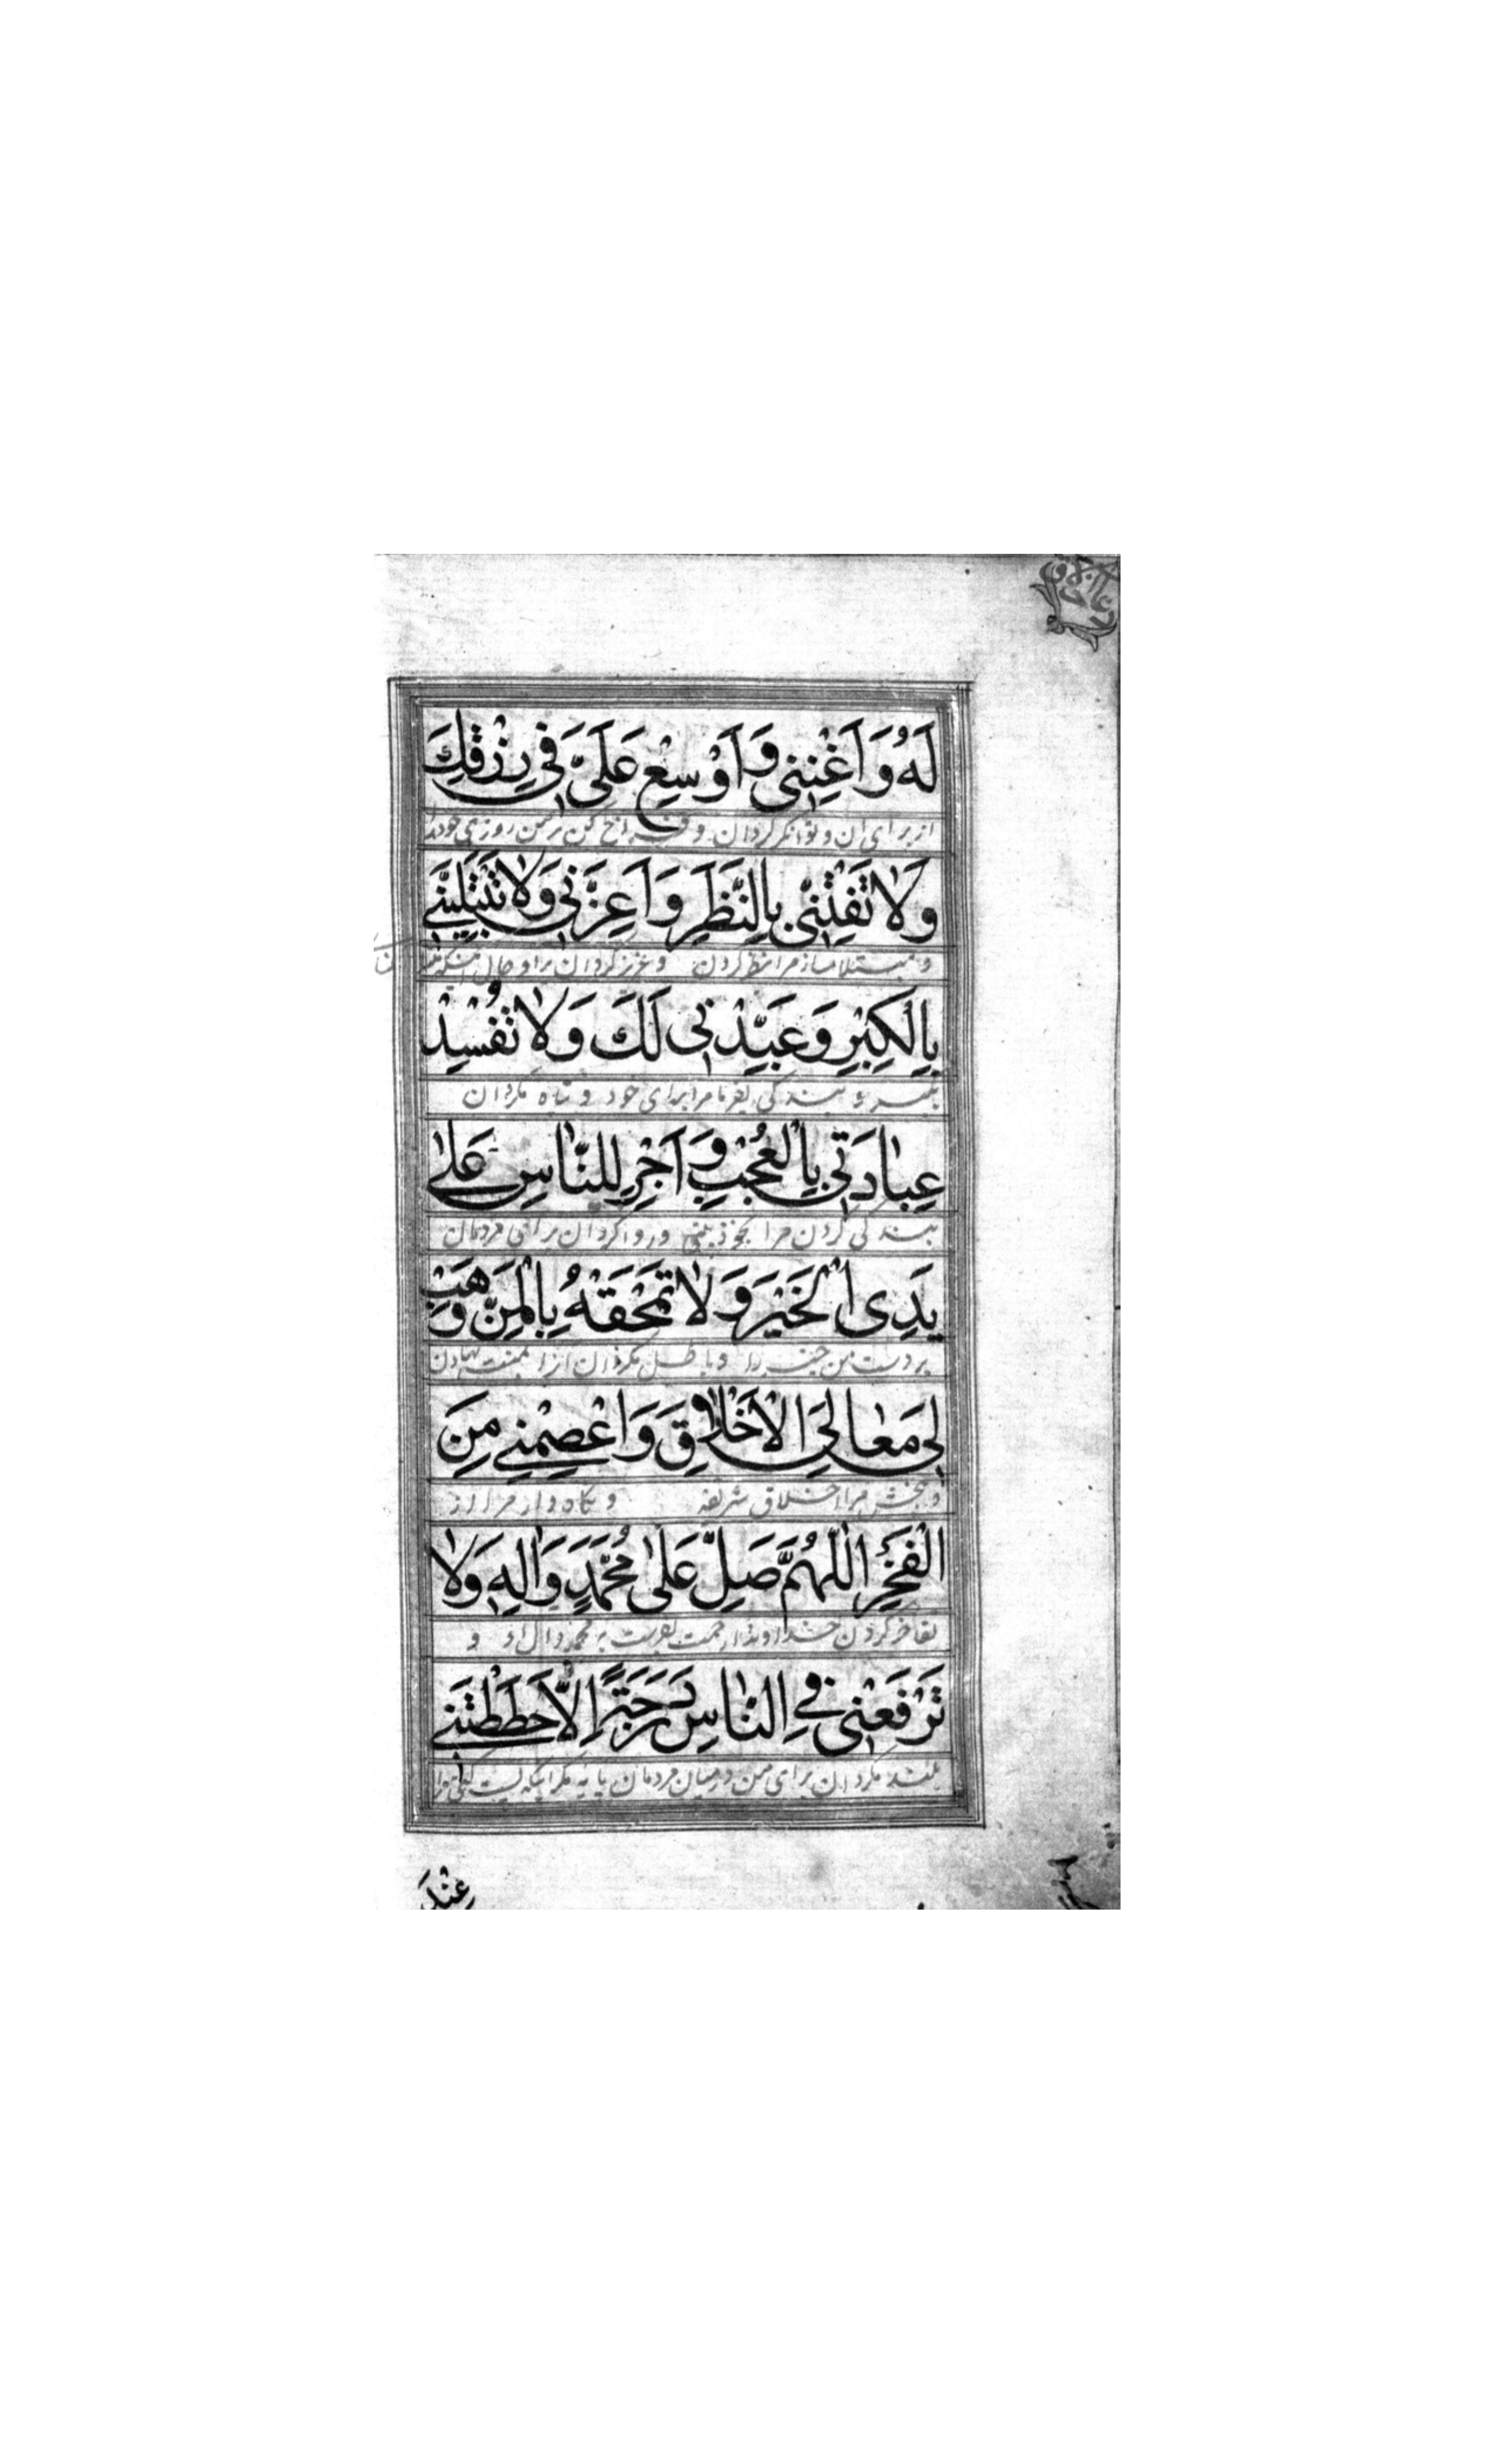 لَهُ وَاَغْنِنِى وَاَوْسِعْ عَلَىَّ فِى رِزْقِكَ
از برای ان و توانکر کردان و فراخ کن بر من روزی خود را
وَلاٰ تَفْتِنِّى بِالنَّظَرِ وَاَعِزَّنِى وَلاٰ تَبْتَلِيَنِّى
و مبتلا مساز مرا بنظر کردن و عزیز کردان مرا و
بِالْكِبْرِ وَعَبِّدْنِى لَكَ وَلاٰ تُفْسِدْ
و بندکی بفرما مرا برای خود و تباه مکردان
عِبادَتِى بِالْعُجْبِ وَاَجْرِ لِلنّٰاسِ عَلىٰ
بندکی کردن مرا بخودبینی و روا کردان برای مردمان
يَدِى الْخَيْرَ وَلاٰ تَمْحَقْهُ بِالْمَنِّ وَهَبْ
بر دست من خیر را و باطل مکردان انرا بمنت نهادن
لِى مَعٰالِىَ الْاَخْلاٰقِ وَاعْصِمْنِى مِنَ
و ببخش مرا اخلاق شریفه و نکاه دار مرا از
الْفَخْرِ اَللّٰهُمَّ صَلِّ عَلىٰ مُحَمَّدٍ وَاٰلِهِ وَلاٰ
تفاخر کردن خداوندا رحمت بفرست بر محمد و ال او و
تَرْفَعْنِى فِى النّٰاسِ دَرَجَةً اِلاّٰ حَطَطْتَنِى
بلند مکردان برای من درمیان مردمان پایه مکر اینکه پست کنی مرا
عِنْدَ